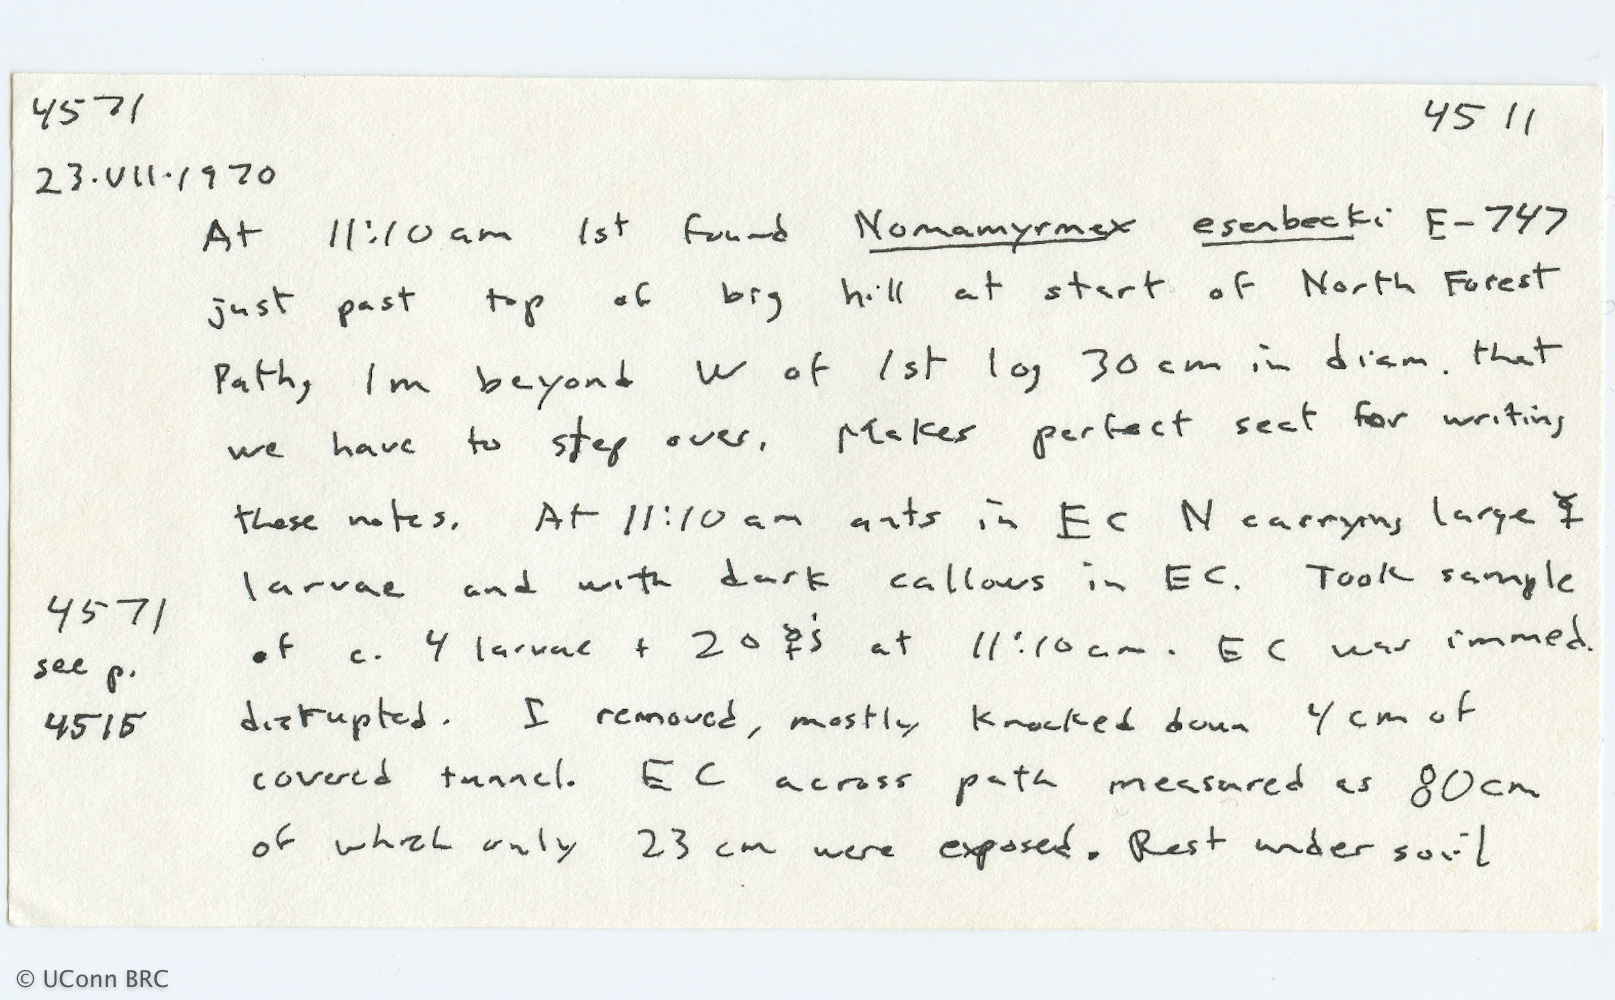 4571 4511
23.VII.1970
At 11:10 am 1st found Nomamyrmex esenbecki E-747
just past top of big hill at start of North Forest
Path, 1m beyond W of 1st log 30 cm in diam. that
we have to step over. Makes perfect seat for writing
these notes. At 11:10 am ants in EC N carrying large ☿
larvae and with dark callows in EC. Took sample
4571 of c. 4 larvae + 20 ☿'s at 11:10 am. EC was immed.
see p.
4515 disrupted. I removed, mostly knocked down 4 cm of
covered tunnel. EC across path measured as 80 cm
of which only 23 cm were exposed. Rest under soil
© UConn BRC